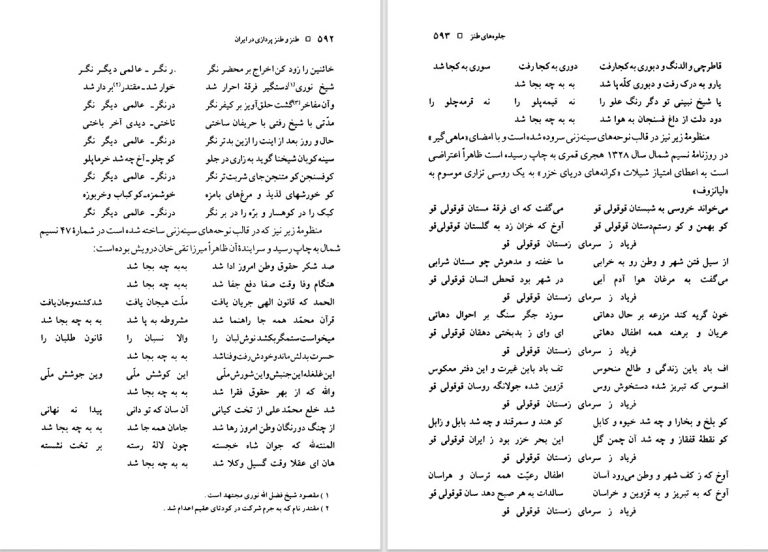 ۵۹۲ □ طنز و طنز پردازی در ایران
خائنین را زود کن اخراج بر محضر نگر ر نگر ـ عالمی دیگر نگر
شیخ نوری(۱)دستگیر فرقهٔ احرار شد خوار شد ـ مقتدر(۲)بر دار شد
وآن مفاخر(۳)گشت حلق‌آویز بر کیفر نگر درنگر ـ عالمی دیگر نگر
مدّتی با شیخ رفتی با حریفان ساختی تاختی ـ دیدی آخر باختی
حال و روز بعد از اینت را ازین بدتر نگر درنگر ـ عالمی دیگر نگر
سینه کوبان شیخنا گوید به زاری در جلو کو چلو ـ آخ چه شد خرماپلو
کوفسنجن کو متنجن جای شربت‌تر نگر درنگر ـ عالمی دیگر نگر
کو خورشهای لذیذ و مرغ‌های بامزه خوشمزه ـ کو کباب و خربوزه
کبک را در کوهسار و برّه را در بر نگر درنگر ـ عالمی دیگر نگر
منظومهٔ زیر نیز که در قالب نوحه‌های سینه‌زنی ساخته شده است در شمارهٔ ۴۷ نسیم
شمال به چاپ رسید و سرایندهٔ آن ظاهراً میرزا تقی خان درویش بوده است:
صد شکر حقوق وطن امروز ادا شد به‌به چه بجا شد
هنگام وفا وقت صفا دفع جفا شد به به چه بجا شد
الحمد که قانون الهی جریان یافت ملّت هیجان یافت شد کشته و جان یافت
قرآن محمّد همه جا راهنما شد مشروطه به پا شد به به چه بجا شد
میخواست ستمگر بکشد نوش لبان را والا نسبان را قانون طلبان را
حسرت بدلش ماند و خودش رفت و فنا شد به به چه بجا شد
این غلغله این جنبش و این شورش ملّی این کوشش ملّی وین جوشش ملّی
والله که از بهر حقوق فقرا شد به به چه بجا شد
شد خلع محمّد علی از تخت کیانی آن سان که تو دانی پیدا نه نهانی
از چنگ دورنگان وطن امروز رها شد جامان همه جا شد به به چه بجا شد
المنته‌لله که جوان شاه خجسته چون لاله رسته بر تخت نشسته
هان ای عقلا وقت گسیل وکلا شد به به چه بجا شد
۱ ) مقصود شیخ فضل الله نوری مجتهد است .
۲ ) مقتدر نام که به جرم شرکت در کودتای عقیم اعدام شد .
جلوه‌های طنز □ ۵۹۳
قاطرچی و الدنگ و دبوری به کجا رفت دوری به کجا رفت سوری به کجا شد
یارو به درک رفت و دبوری کلّه پا شد به به چه بجا شد
یا شیخ نبینی تو دگر رنگ علو را نه قیمه‌پلو را نه قرمه‌چلو را
دود دلت از داغ فسنجان به هوا شد به به چه بجا شد
منظومهٔ زیر نیز در قالب نوحه‌های سینه‌زنی سروده شده است و با امضای «ماهی گیر»
در روزنامهٔ نسیم شمال سال ۱۳۲۸ هجری قمری به چاپ رسیده است ظاهراً اعتراضی
است به اعطای امتیاز شیلات «کرانه‌های دریای خزر» به یک روسی تزاری موسوم به
«لیانزوف»
می‌خواند خروسی به شبستان قوقولی قو می‌گفت که ای فرقهٔ مستان قوقولی قو
کو بهمن و کو رستم‌دستان قوقولی‌قو آوخ که خزان زد به گلستان قوقولی‌قو
فریاد ز سرمای زمستان قوقولی قو
از سیل فتن شهر و وطن رو به خرابی ما خفته و مدهوش چو مستان شرابی
می‌گفت به مرغان هوا آدم آبی در شهر بود قحطی انسان قوقولی قو
فریاد ز سرمای زمستان قوقولی قو
خون گریه کند مزرعه بر حال دهاتی سوزد جگر سنگ بر احوال دهاتی
عریان و برهنه همه اطفال دهاتی ای وای ز بدبختی دهقان قوقولی قو
فریاد ز سرمای زمستان قوقولی قو
اف باد باین زندگی و طالع منحوس تف باد باین غیرت و این دفتر معکوس
افسوس که تبریز شده دستخوش روس قزوین شده جولانگه روسان قوقولی قو
فریاد ز سرمای زمستان قوقولی قو
کو بلخ و بخارا و چه شد خیوه و کابل کو هند و سمرقند و چه شد بابل و زابل
کو نقطهٔ قفقاز و چه شد آن چمن گل این بحر خزر بود ز ایران قوقولی قو
فریاد ز سرمای زمستان قوقولی قو
آوخ که ز کف شهر و وطن می‌رود آسان اطفال رعیّت همه ترسان و هراسان
آوخ که به تبریز و به قزوین و خراسان سالدات به هر صبح دهد سان قوقولی قو
فریاد ز سرمای زمستان قوقولی قو